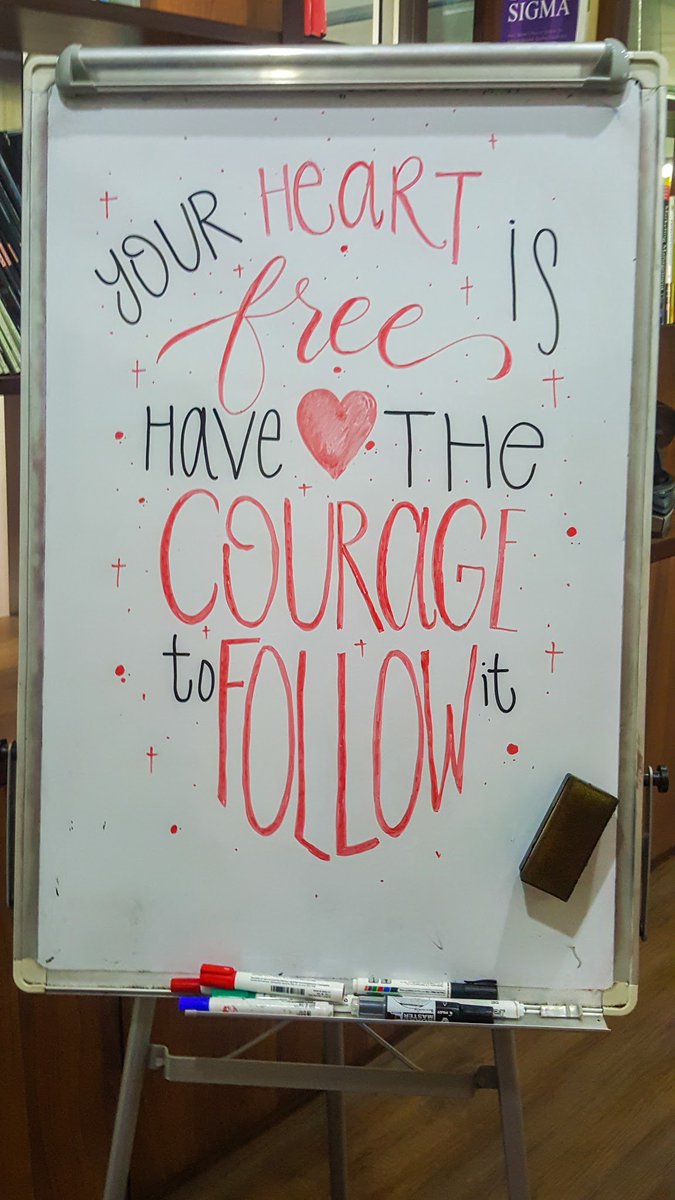 SIGMA
YOUR HEART IS
free
HAVE THE
COURAGE
to FOLLOW it
MASTER